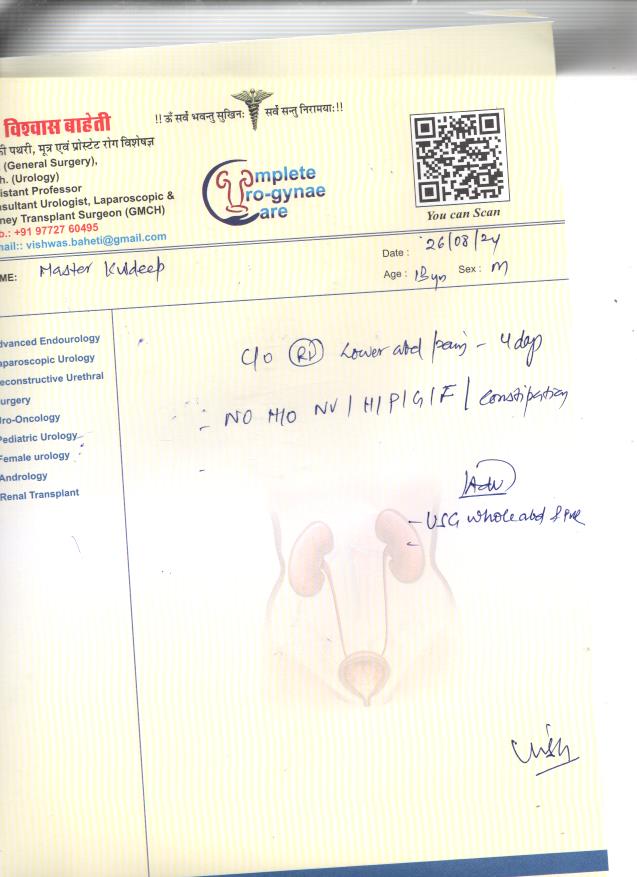 !! ॐ सर्वे भवन्तु सुखिनः सर्वे सन्तु निरामयाः !!
विश्वास बाहेती
की पथरी, मूत्र एवं प्रोस्टेट रोग विशेषज्ञ
(General Surgery),
h. (Urology)
istant Professor
nsultant Urologist, Laparoscopic &
ney Transplant Surgeon (GMCH)
b.: +91 97727 60495
mail:: vishwas.baheti@gmail.com
omplete
ro-gynae
are
You can Scan
ME: Master Kuldeep
Date : 26/08/24
Age : Sex : M
dvanced Endourology
aparoscopic Urology
econstructive Urethral
urgery
ro-Oncology
Pediatric Urology
Female urology
Andrology
Renal Transplant
C/O Rt Lower abd pain - 4 day
- NO H/O NV / H / P / G / F / Constipation
-
Adv
- USG whole abd & PVR
-